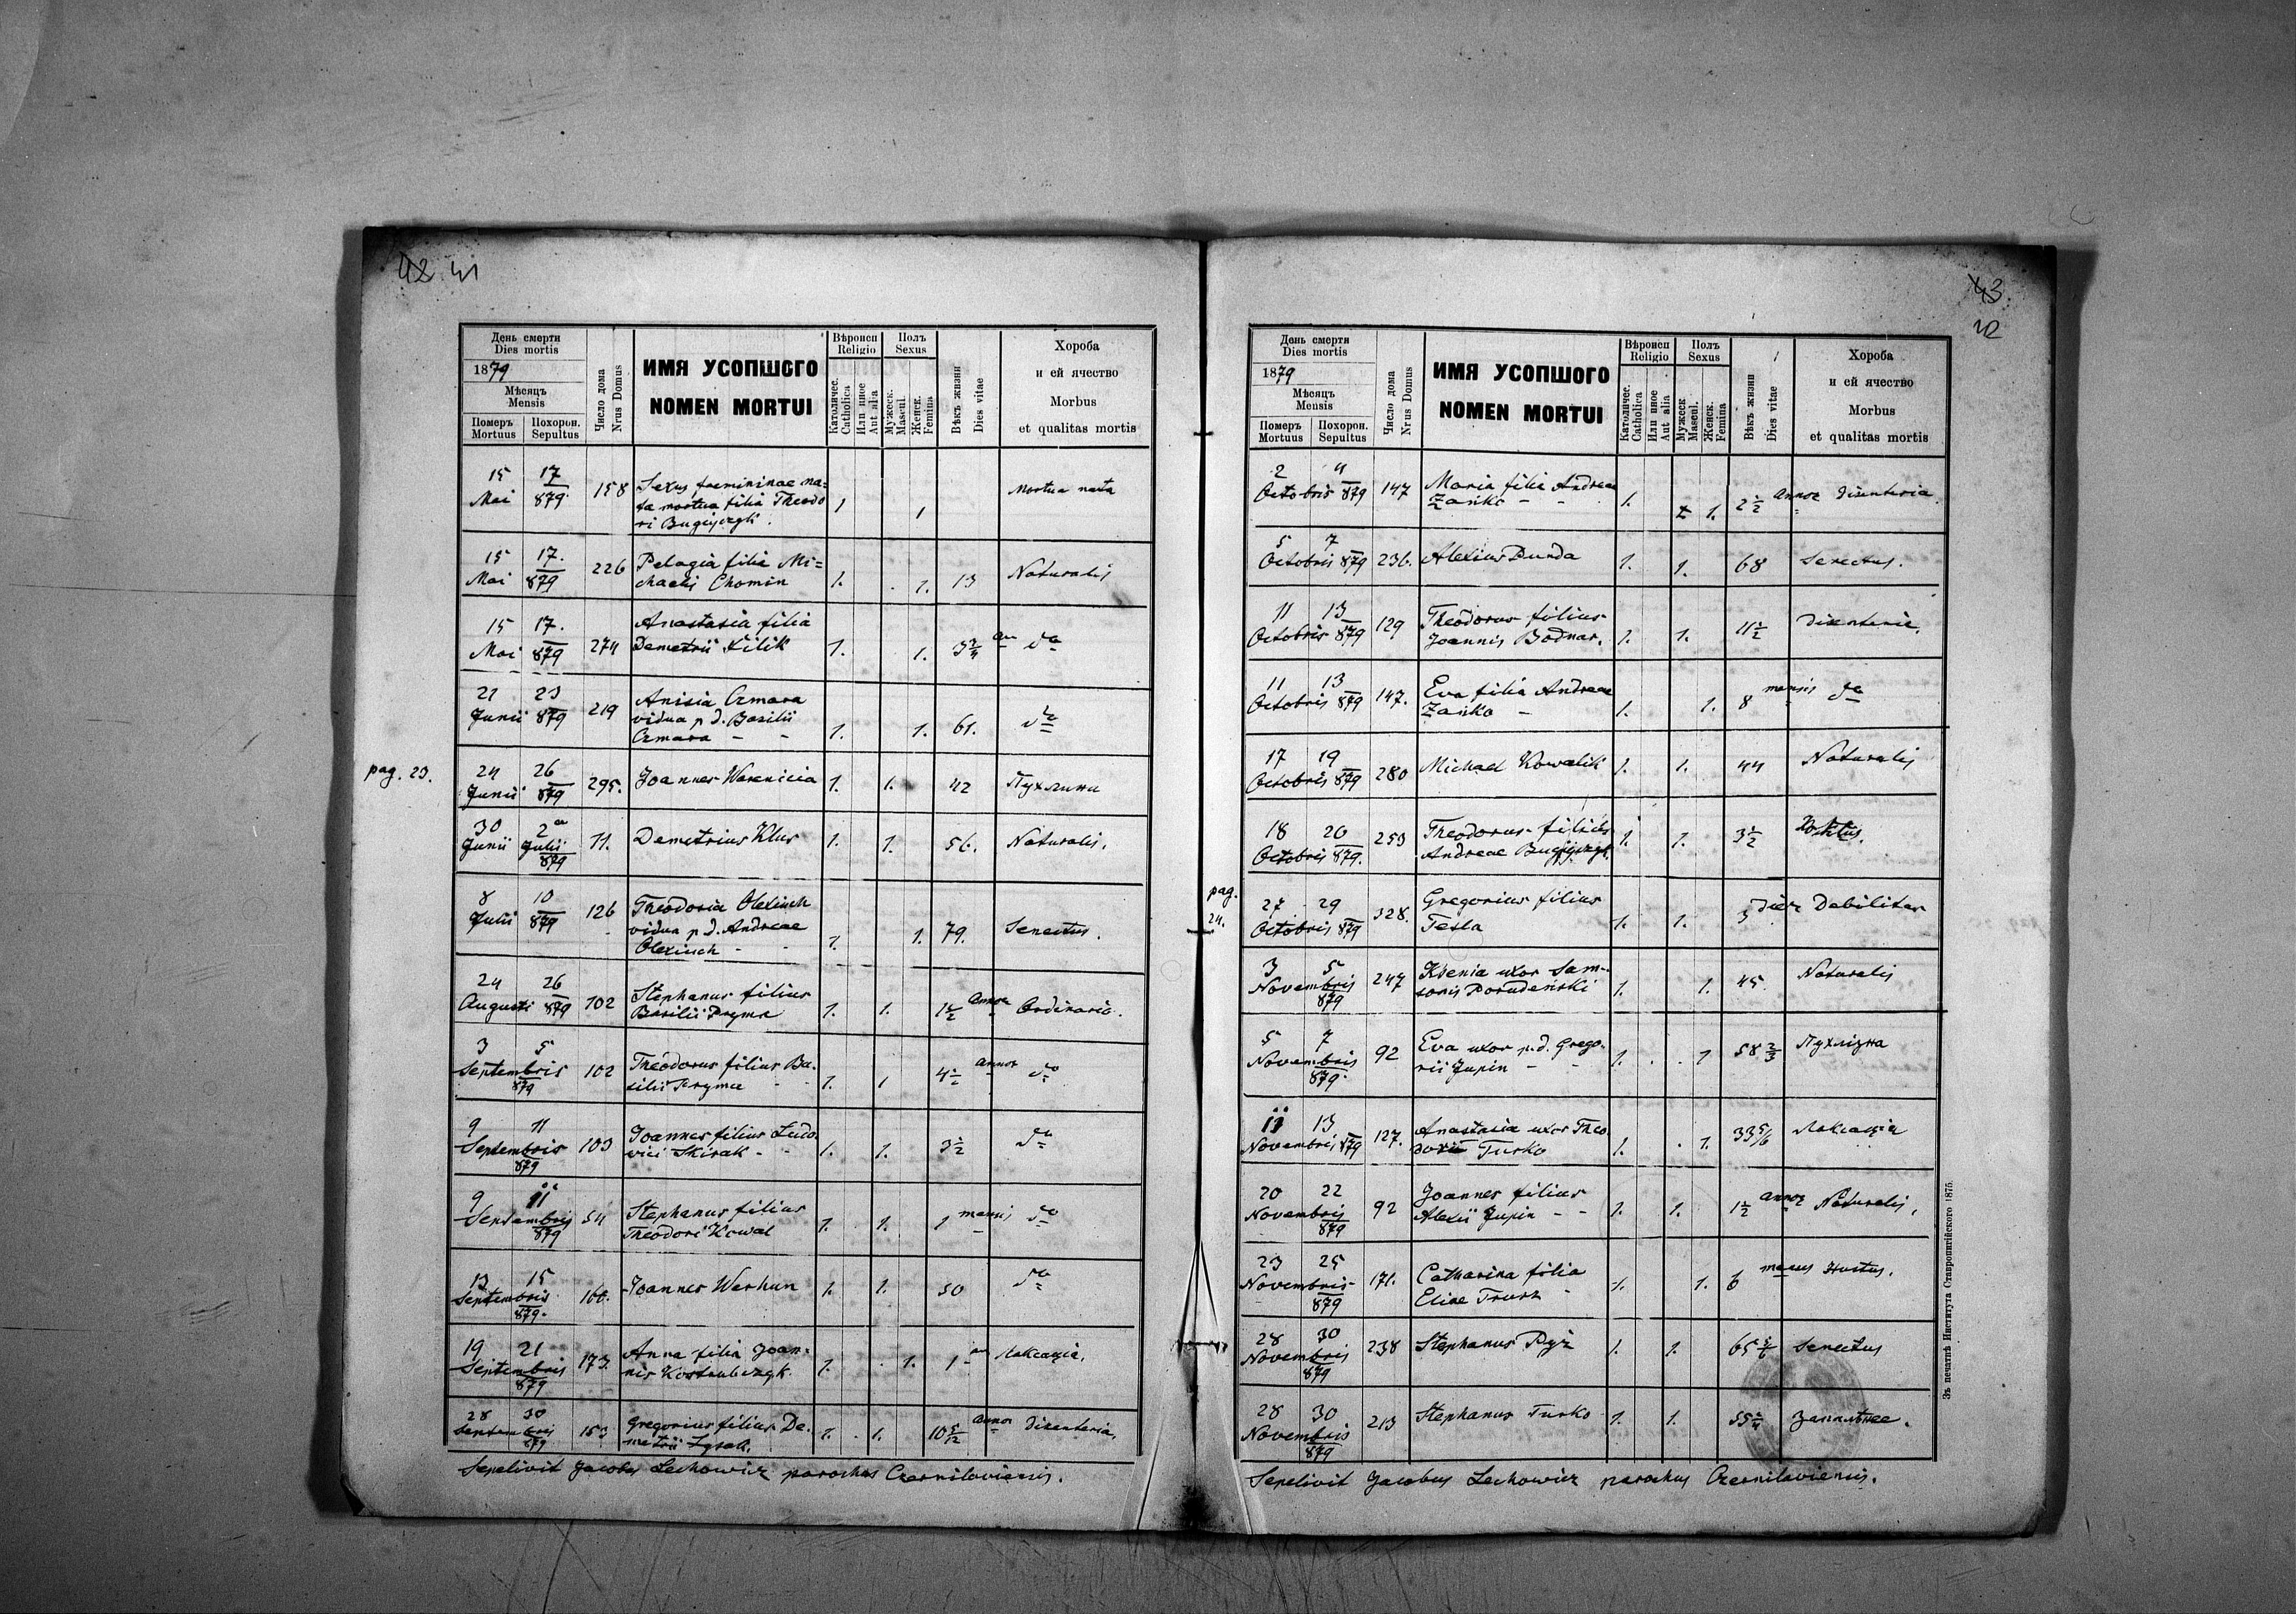 42 41
День смерти
Dies mortis
1879
Мѣсяцъ
Mensis
Померъ
Mortuus
Похорон.
Sepultus
Число дома
Nrus Domus
ИМЯ УСОПШОГО
NOMEN MORTUI
Вѣроисп
Religio
Католичес.
Catholica
Или иное
Aut alia
Полъ
Sexus
Мужеск.
Mascul.
Женск.
Femina
Вѣкъ жизни
Dies vitae
Хороба
и ей ячество
Morbus
et qualitas mortis
15 17 158 Sexus foemininae na=
Mai 879 ta mortua filia Theodo 1 1 Mortua nata
ri Bugijczyk.
15 17. 226 Pelagia filia Mi=
Mai 879 chaelis Chomin 1. 1. 13 Naturalis
15 17. 274 Anastasia filia
Mai 879 Demetrii Kilik 1. 1. 3¾ an dto
21 23 219 Anisia Czmara
Junii 879 vidua p. d. Basilii
Czmara 1. 1. 61. dto
pag. 23.
24 26 295. Joannes Warenicia 1. 1. 42 Пухлина
Junii 879
30 2 71. Demetrius Klus 1. 1. 56. Naturalis.
Junii Julii
879
8 10 126 Theodosia Olexiuch
Julii 879 vidua p. d. Andreae
Olexiuch 1. 1. 79. Senectus.
24 26 102 Stephanus filius
Augusti 879 Basilii Pryma 1. 1. 1½ annor Ordinaria.
3 5 102 Theodorus filius Ba-
Septembris 879 silii Pryma 1. 1 4½ annor dto
9 11 103 Joannes filius Ludo
Septembris 879 vici Skirak 1. 1. 3½ dto
9 11 54 Stephanus filius
Septembris 879 Theodori Kowal 1. 1. 1 mensis dto
13 15 166. Joannes Werhun 1. 1. 50 dto
Septembris
879.
19 21 173. Anna filia Joan-
Septembris 879 nis Kostrubczyk. 1. 1. 1 an Лаксація.
28 30 153 Gregorius filius De-
Septembris 879 metrii Lysak. 1. 1. 10 5/12 annor Disenteria.
Sepelivit Jacobus Lechowicz parochus Czerniloviensis.
43
42
День смерти
Dies mortis
1879
Мѣсяцъ
Mensis
Померъ
Mortuus
Похорон.
Sepultus
Число дома
Nrus Domus
ИМЯ УСОПШОГО
NOMEN MORTUI
Вѣроисп
Religio
Католичес.
Catholica
Или иное
Aut alia
Полъ
Sexus
Мужеск
Mascul.
Женск.
Femina
Вѣкъ жизни
Dies vitae
Хороба
и ей ячество
Morbus
et qualitas mortis
2 4 147 Maria filia Andreae
Octobris 879 Zańko 1. 1. 2½ annor Disenteria.
5 7 236. Alexius Dunda 1. 1. 68 Senectus.
Octobris 879
11 13 129 Theodorus filius
Octobris 879 Joannis Bodnar. 1. 1. 11½ Disenteria.
11 13 147. Eva filia Andreae
Octobris 879 Zańko 1. 1. 8 mensis dto
17 19 280 Michael Kowalik 1. 1. 44 Naturalis
Octobris 879
18 20 253 Theodorus filius
Octobris 879. Andreae Bugijczyk. 1. 1. 3½
pag.
24.
27 29 328. Gregorius filius
Octobris 879 Tesla 1. 1. 3 dier Debilitas
3 5 247 Ksenia uxor Sam-
Novembris 879 sonis Porudeński 1. 1. 45. Naturalis
5 7 92 Eva uxor p. d. Grego-
Novembris 879. rii Jupin 1. 1 58⅔ Пухлізна
11 13 127. Anastasia uxor Theo
Novembris 879 dorii Turko 1. 1. 33 5/6 Лаксація
20 22 92 Joannes filius
Novembris 879 Alexii Jupin 1. 1. 1½ annor Naturalis.
23 25 171. Catharina filia
Novembris 879 Eliae Trusz 1. 1. 6 menses Hustus.
28 30 238 Stephanus Pyż 1. 1. 65 Senectus
Novembris
879
28 30 213 Stephanus Turko 1. 1. 55 Запалѣнее.
Novembris
879
Sepelivit Jacobus Lechowicz parochus Czerniloviensis.
Зъ печатнѣ Института Ставропигійского 1875.